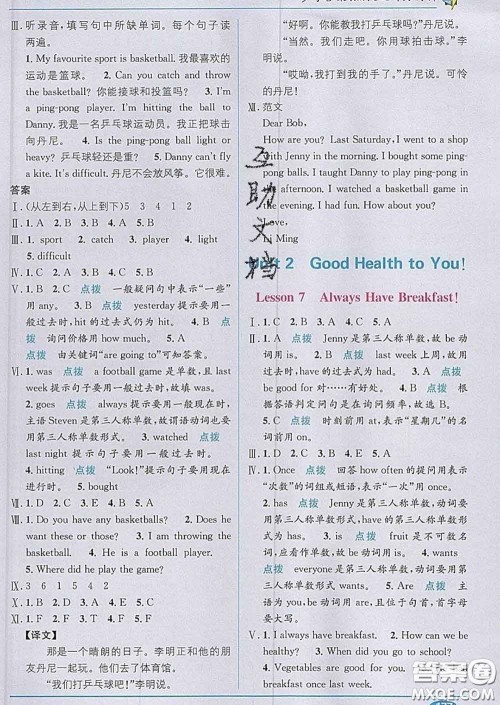 Ⅲ. 听录音,填写句中所缺单词。每个句子读
两遍。
1. My favourite sport is basketball. 我最喜欢的
运动是篮球。 2. Can you catch and throw
the basketball? 你能接球和投篮吗? 3. I'm
a ping-pong player. I'm hitting the ball to
Danny. 我是一名乒乓球运动员。我正把球击
向丹尼。 4. Is the ping-pong ball light or
heavy? 乒乓球轻还是重? 5. Danny can't fly
a kite. It's difficult. 丹尼不会放风筝。它很难。
答案
Ⅰ. (从左到右,从上到下)5 3 4 1 2
Ⅱ. 1. A 2. B 3. B 4. A 5. A
Ⅲ. 1. sport 2. catch 3. player 4. light
5. difficult
Ⅳ. 1. B 2. D 3. C 4. E 5. A
Ⅴ. 1. B 点拨 一般疑问句中表示“一些”用
any。 2. B 点拨 yesterday 提示要用一
般过去时,hit 的过去式仍为 hit 3. C
点拨 询问价格用 how much。 4. B 5. A
点拨 由关键词“are going to”可知答案。
Ⅵ. 1. was 点拨 a football game 是单数,且
last week 提示句子要用一般过去时,故填 was。
2. goes 点拨 always 提示要用一般现在时,
主语 Steven 是第三人称单数,故谓语动词也要
用第三人称单数形式。 3. watched 点拨
last night 提示句子要用一般过去时。
4. hitting 点拨 “Look!”提示句子要用现在
进行时。 5. bought
Ⅶ. 1. D 2. C 3. E 4. A 5. B
Ⅷ. 1. Do you have any basketballs? 2. Does he
want these or those? 3. I am throwing the
basketball. 4. He is a football player.
5. Where did he play the game?
Ⅸ. 3 6 1 5 4 2
Ⅹ. 1. B 2. B 3. B 4. C
Ⅺ. 1. B 2. A 3. A
【译文】
这是一个晴朗的日子。李明正和他的朋
友丹尼一起玩。他们去了体育馆。
“我们打乒乓球吧!”李明说。
“好啊。你能教我打乒乓球吗?”丹尼说。
“当然。我们走吧。你用球拍击球。”李
明说。
“哎呦,我打到我的手了。”丹尼说。可怜
的丹尼!
Ⅻ. 范文
Dear Bob,
How are you? Last Saturday, I went to a shop
with Jenny in the morning. I bought some ping-pong
balls. I taught Danny to play ping-pong in
afternoon. I watched a basketball game in
the evening. I had fun. How about you?
Love,
Li Ming
Unit 2 Good Health to You!
Lesson 7 Always Have Breakfast!
Ⅰ. 1. C 2. B 3. C 4. C 5. A
Ⅱ. 1. A 点拨 Jenny 是第三人称单数,故 be 动
词用 is。 2. B 点拨 last week 上周,用于
一般过去时,have 的过去式为 had。 3. A 点拨
be good for …对……有好处。 4. B 点拨 根
据答语判定问句是在询问频率,故选 B。
5. C 点拨 时刻前用 at,表示“星期几”的名
词前用 on。
Ⅲ. 1. D 2. B 3. A 4. C 5. E
Ⅳ. 1. Once 点拨 回答 how often 的提问用表示
“次数”的词组或短语,表示“一次”用 once。
2. has 点拨 Jenny 是第三人称单数,动词要
用第三人称单数形式。 3. is 点拨 fruit 是不可数名
词,应看作单数,故 be 动词用 is。 4. wants
点拨 everyone 是第三人称单数,动词要用第三
人称单数形式。 5. Are 点拨 apples 是复
数,故 be 动词用 are,并且位于句首,首字母要
大写。
Ⅴ. 1. I always have breakfast. 2. How often do
you have fruit? 3. When did you go to school?
4. Vegetables are good for you. 5. I had
breakfast once last week.
互助文档
答案圈
MXQE.COM